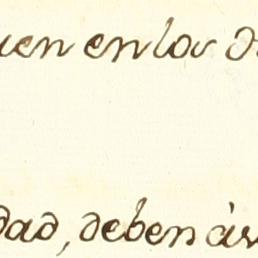 uen en los
dad, deben á